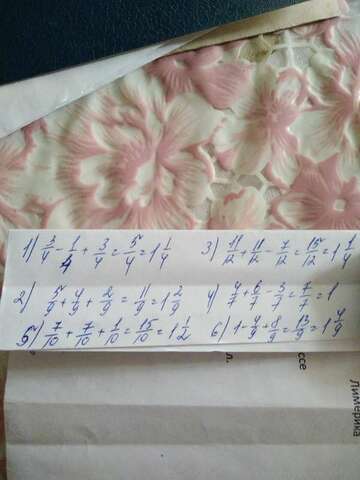 1) 3/4 - 1/4 + 3/4 = 5/4 = 1 1/4 3) 11/12 + 11/12 - 7/12 = 15/12 = 1 1/4
2) 5/9 + 4/9 + 2/9 = 11/9 = 1 2/9 4) 4/7 + 6/7 - 3/7 = 7/7 = 1
5) 7/10 + 7/10 + 1/10 = 15/10 = 1 1/2 6) 1 - 4/9 + 8/9 = 13/9 = 1 4/9
ссе
л.
Лимерика